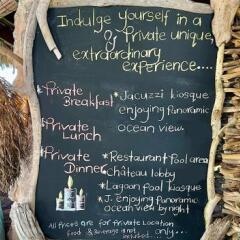 Indulge yourself in a
of Private unique,
extraordinary
experience....
*Private
Breakfast
*Jacuzzi kiosque
enjoying panoramic
ocean view.
*Private
Lunch
*Private
Dinner
*Restaurant Pool area
*Château lobby
*Lagoon pool kiosque
*J. enjoying panoramic
ocean view by night
All Prices are for Private Location
Food & Beverage not included... only...